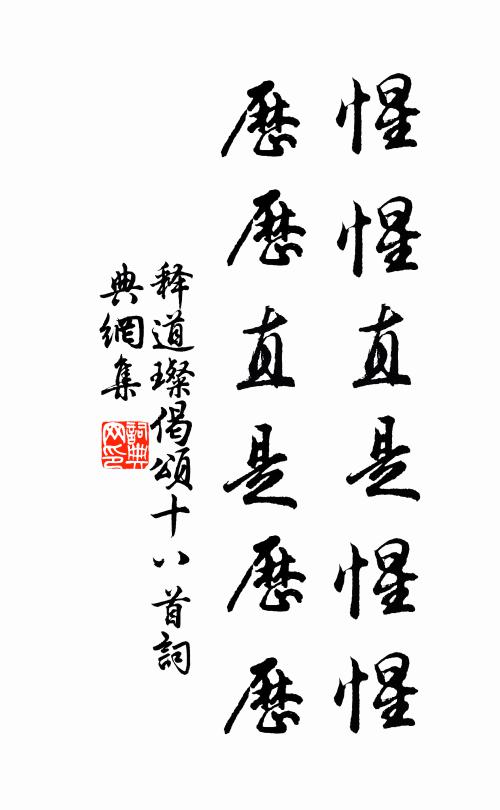 惺惺直是惺惺
歷歷直是歷歷
释道璨偈頌十八首詞
典網集
詞典网印